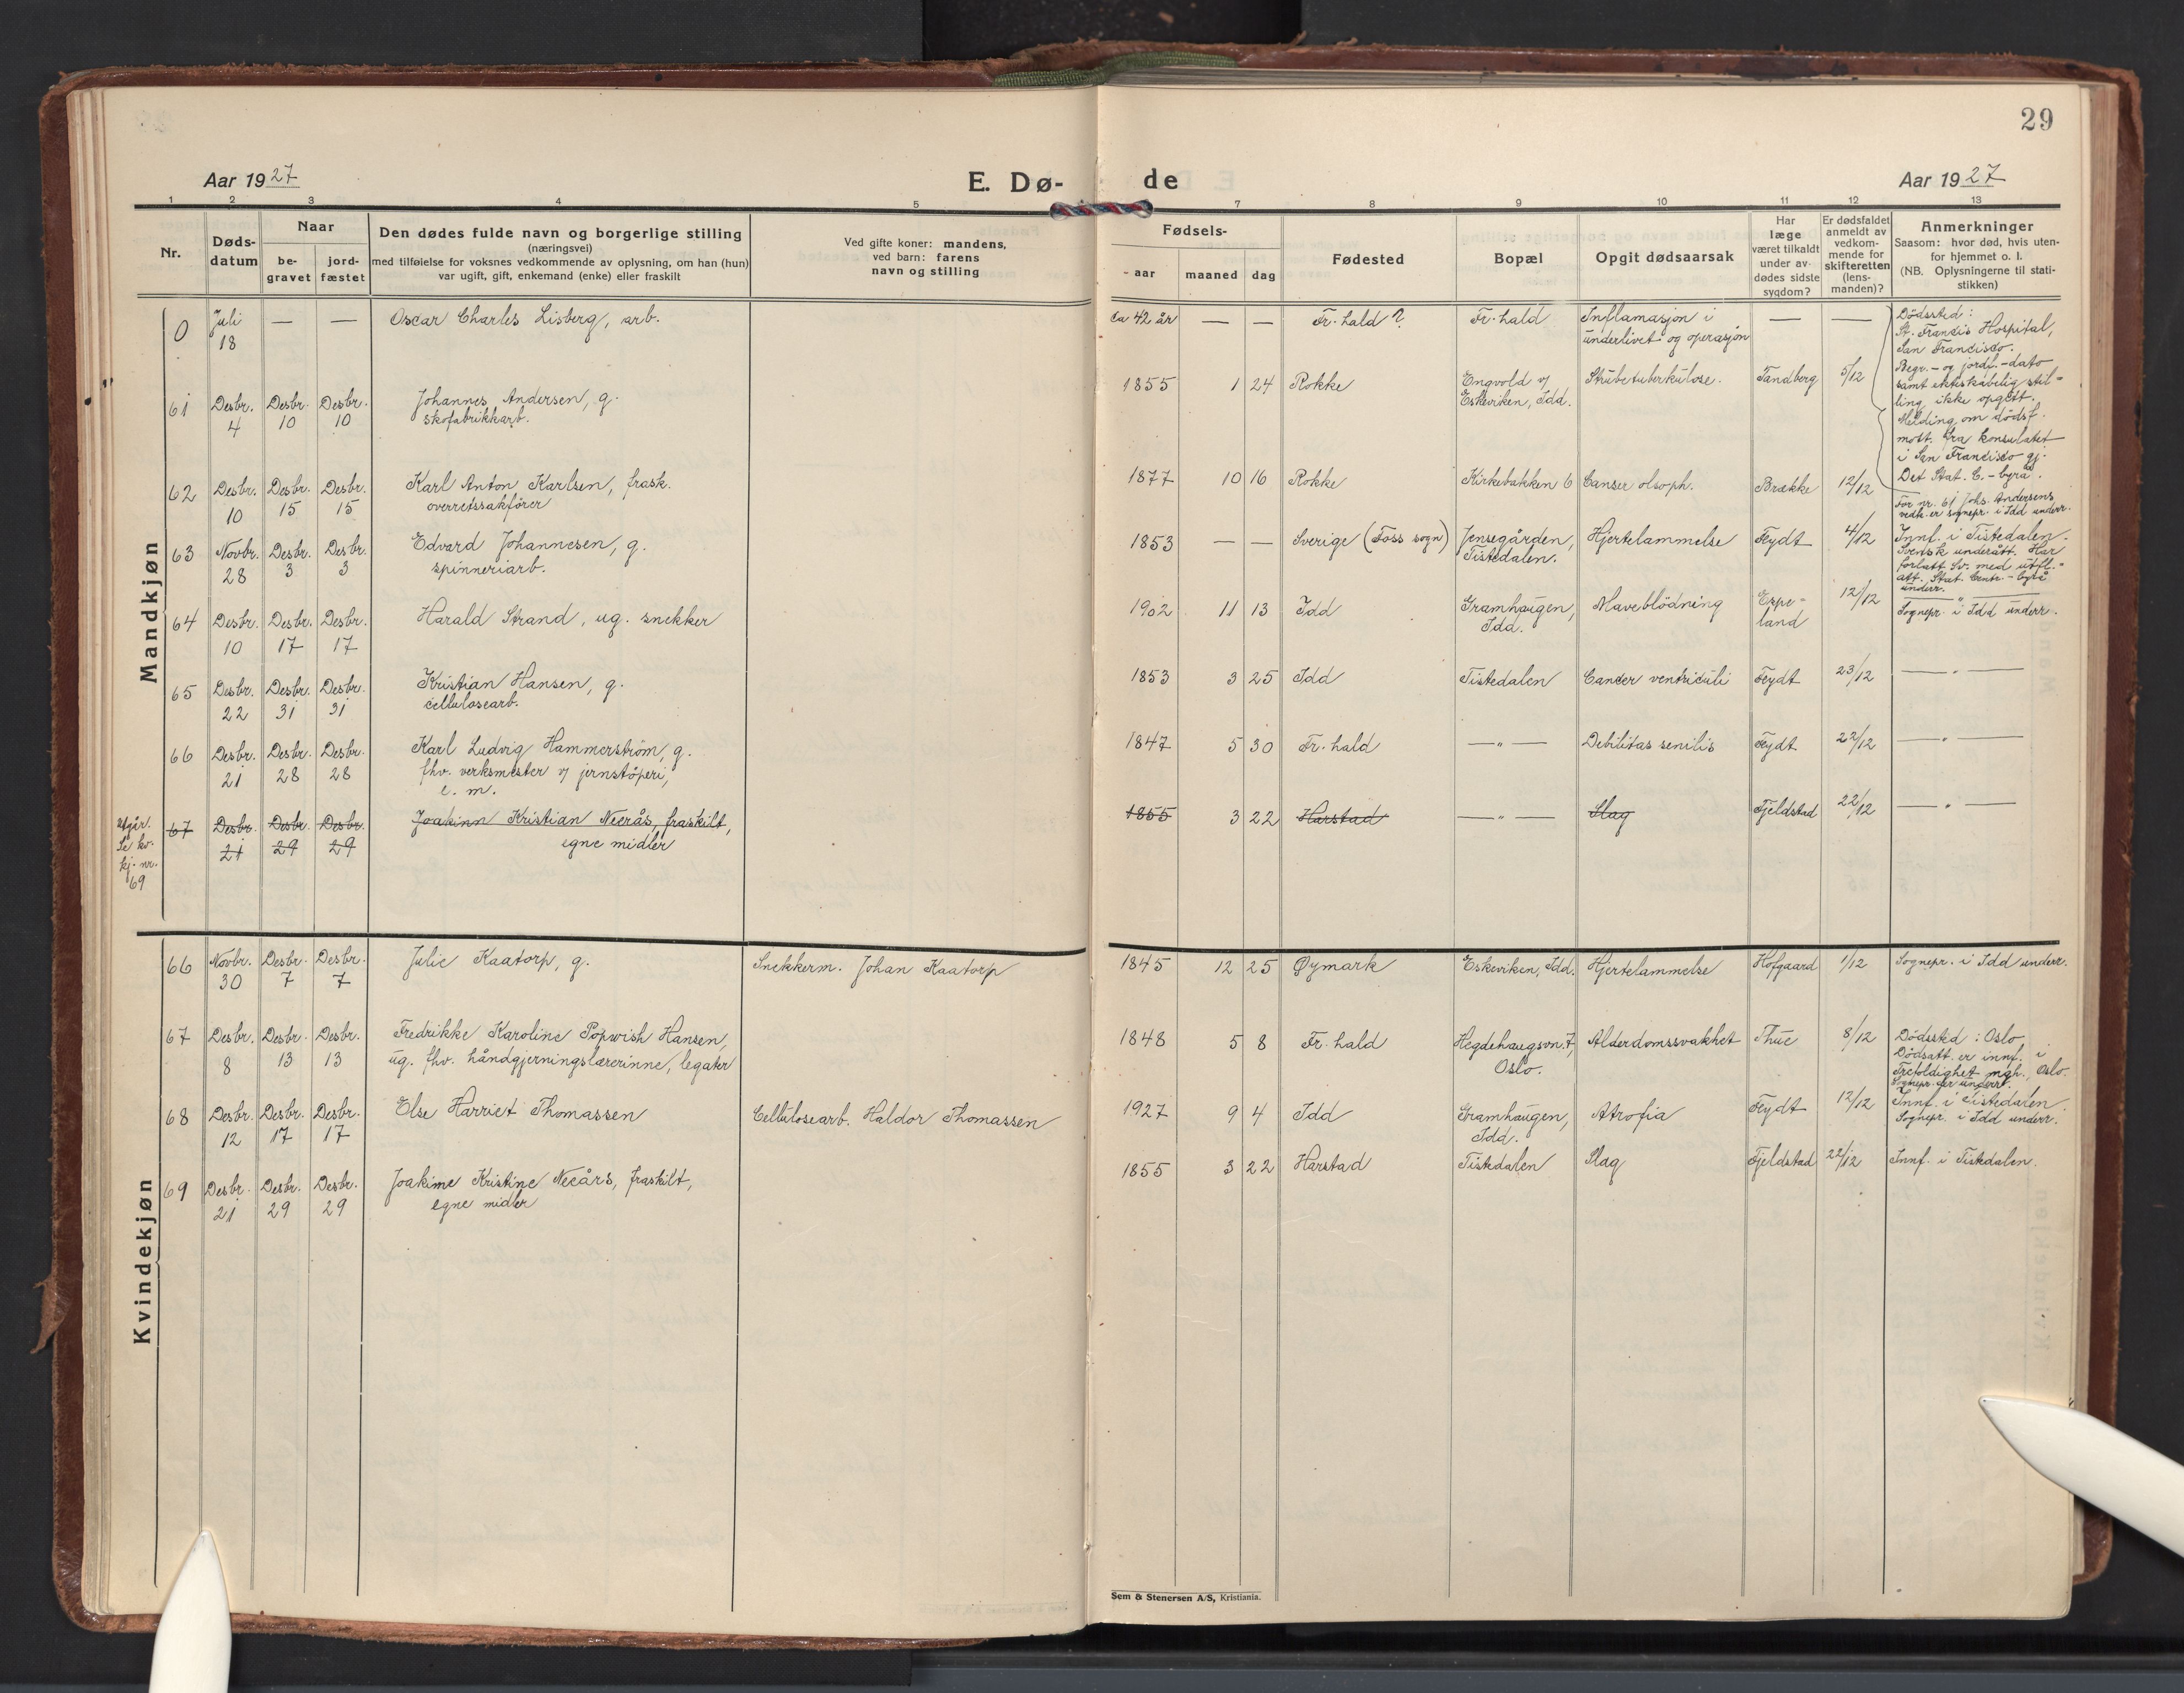 29
Aar 1927
E. Dø-
de
Aar 1927
1 2 3 4 5 7 8 9 10 11 12 13
Nr.
Døds-
datum
Naar
be-
gravet
jord-
fæstet
Den dødes fulde navn og borgerlige stilling
(næringsvei)
med tilføielse for voksnes vedkommende av oplysning, om han (hun)
var ugift, gift, enkemand (enke) eller fraskilt
Ved gifte koner: mandens,
ved barn: farens
navn og stilling
Fødsels-
- aar
maaned
dag
Fødested
Bopæl
Opgit dødsaarsak
Har
læge
været tilkaldt
under av-
dødes sidste
sygdom?
Er dødsfaldet
anmeldt av
vedkom-
mende for
skifteretten
(lens-
manden)?
Anmerkninger
Saasom: hvor død, hvis uten-
for hjemmet o. l.
(NB. Oplysningerne til stati-
stikken)
Mandkjøn
0 Juli — — Oscar Charles Lisberg, arb. ca 42 år — — Fr.hald ? Fr.hald Inflamasjon i — —
18 underlivet og operasjon
Dødssted:
St. Francis Hospital,
San Francisco.
Begr.- og jordf.-dato
samt ekteskabelig stil-
ling ikke opgitt.
Melding om dødsf.
mott. fra konsulatet
i San Francisco gj.
Det Stat. C.-byrå.
61 Desbr. Desbr. Desbr. Johannes Andersen, g. 1855 1 24 Rokke Engvold v/ Strubetuberkulose. Tandberg 5/12
4 10 10 skofabrikkarb. Eskeviken, Idd.
For nr. 61 Johs. Andersens
vedk. er sognepr. i Idd underr.
62 Desbr. Desbr. Desbr. Karl Anton Karlsen, frask. 1877 10 16 Rokke Kirkebakken 6 Canser olsoph. Brække 12/12
10 15 15 overretssakfører
63 Novbr. Desbr. Desbr. Edvard Johannesen, g. 1853 — — Sverige (Foss sogn) Jensegården, Hjertelammelse Feydt 4/12 Innf. i Tistedalen.
28 3 3 spinneriarb. Tistedalen. Svensk undersått. Har
forlatt Sv. med utfl.-
att. Stat. Centr.-byrå
underr.
64 Desbr. Desbr. Desbr. Harald Strand, ug. snekker 1902 11 13 Idd Gramhaugen, Maveblödning Erpe- 12/12 Sognepr. i Idd underr.
10 17 17 Idd. land
65 Desbr. Desbr. Desbr. Kristian Hansen, g. 1853 3 25 Idd Tistedalen Cancer ventriculi Feydt 23/12 — " —
22 31 31 cellulosearb.
66 Desbr. Desbr. Desbr. Karl Ludvig Hammerström, g. 1847 5 30 Fr.hald — " — Debilitas senilis Feydt 22/12 — " —
21 28 28 fhv. verksmester v/ jernstöperi,
e. m.
utgår. 67 Desbr. Desbr. Desbr. Joakinn Kristian Neerås, fraskilt, 1855 3 22 Harstad — " — Slag Fjeldstad 22/12 — " —
Se kv. 21 29 29 egne midler
kj. nr.
69
Kvindekjøn
66 Novbr. Desbr. Desbr. Julie Kaatorp, g. Snekkerm. Johan Kaatorp 1845 12 25 Øymark Eskeviken, Idd. Hjertelammelse Hofgaard 1/12 Sognepr. i Idd underr.
30 7 7
67 Desbr. Desbr. Desbr. Fredrikke Karoline Popwish Hansen, 1848 5 8 Fr.hald Hegdehaugsvn. 7, Alderdomssvakhet Thue 8/12 Dödssted: Oslo.
8 13 13 ug. fhv. håndgjerningslærerinne, legater Oslo. Dödsatt. er innf. i
Trefoldighet mgh., Oslo.
Sognepr. der underr.
68 Desbr. Desbr. Desbr. Else Harriet Thomassen Cellulosearb. Haldor Thomassen 1927 9 4 Idd Gramhaugen, Atrofia Feydt 12/12 Innf. i Tistedalen.
12 17 17 Idd. Sognepr. i Idd underr.
69 Desbr. Desbr. Desbr. Joakime Kristine Neeårs, fraskilt, 1855 3 22 Harstad Tistedalen Slag Fjeldstad 22/12 Innf. i Tistedalen.
21 29 29 egne midler
Sem & Stenersen A/S, Kristiania.